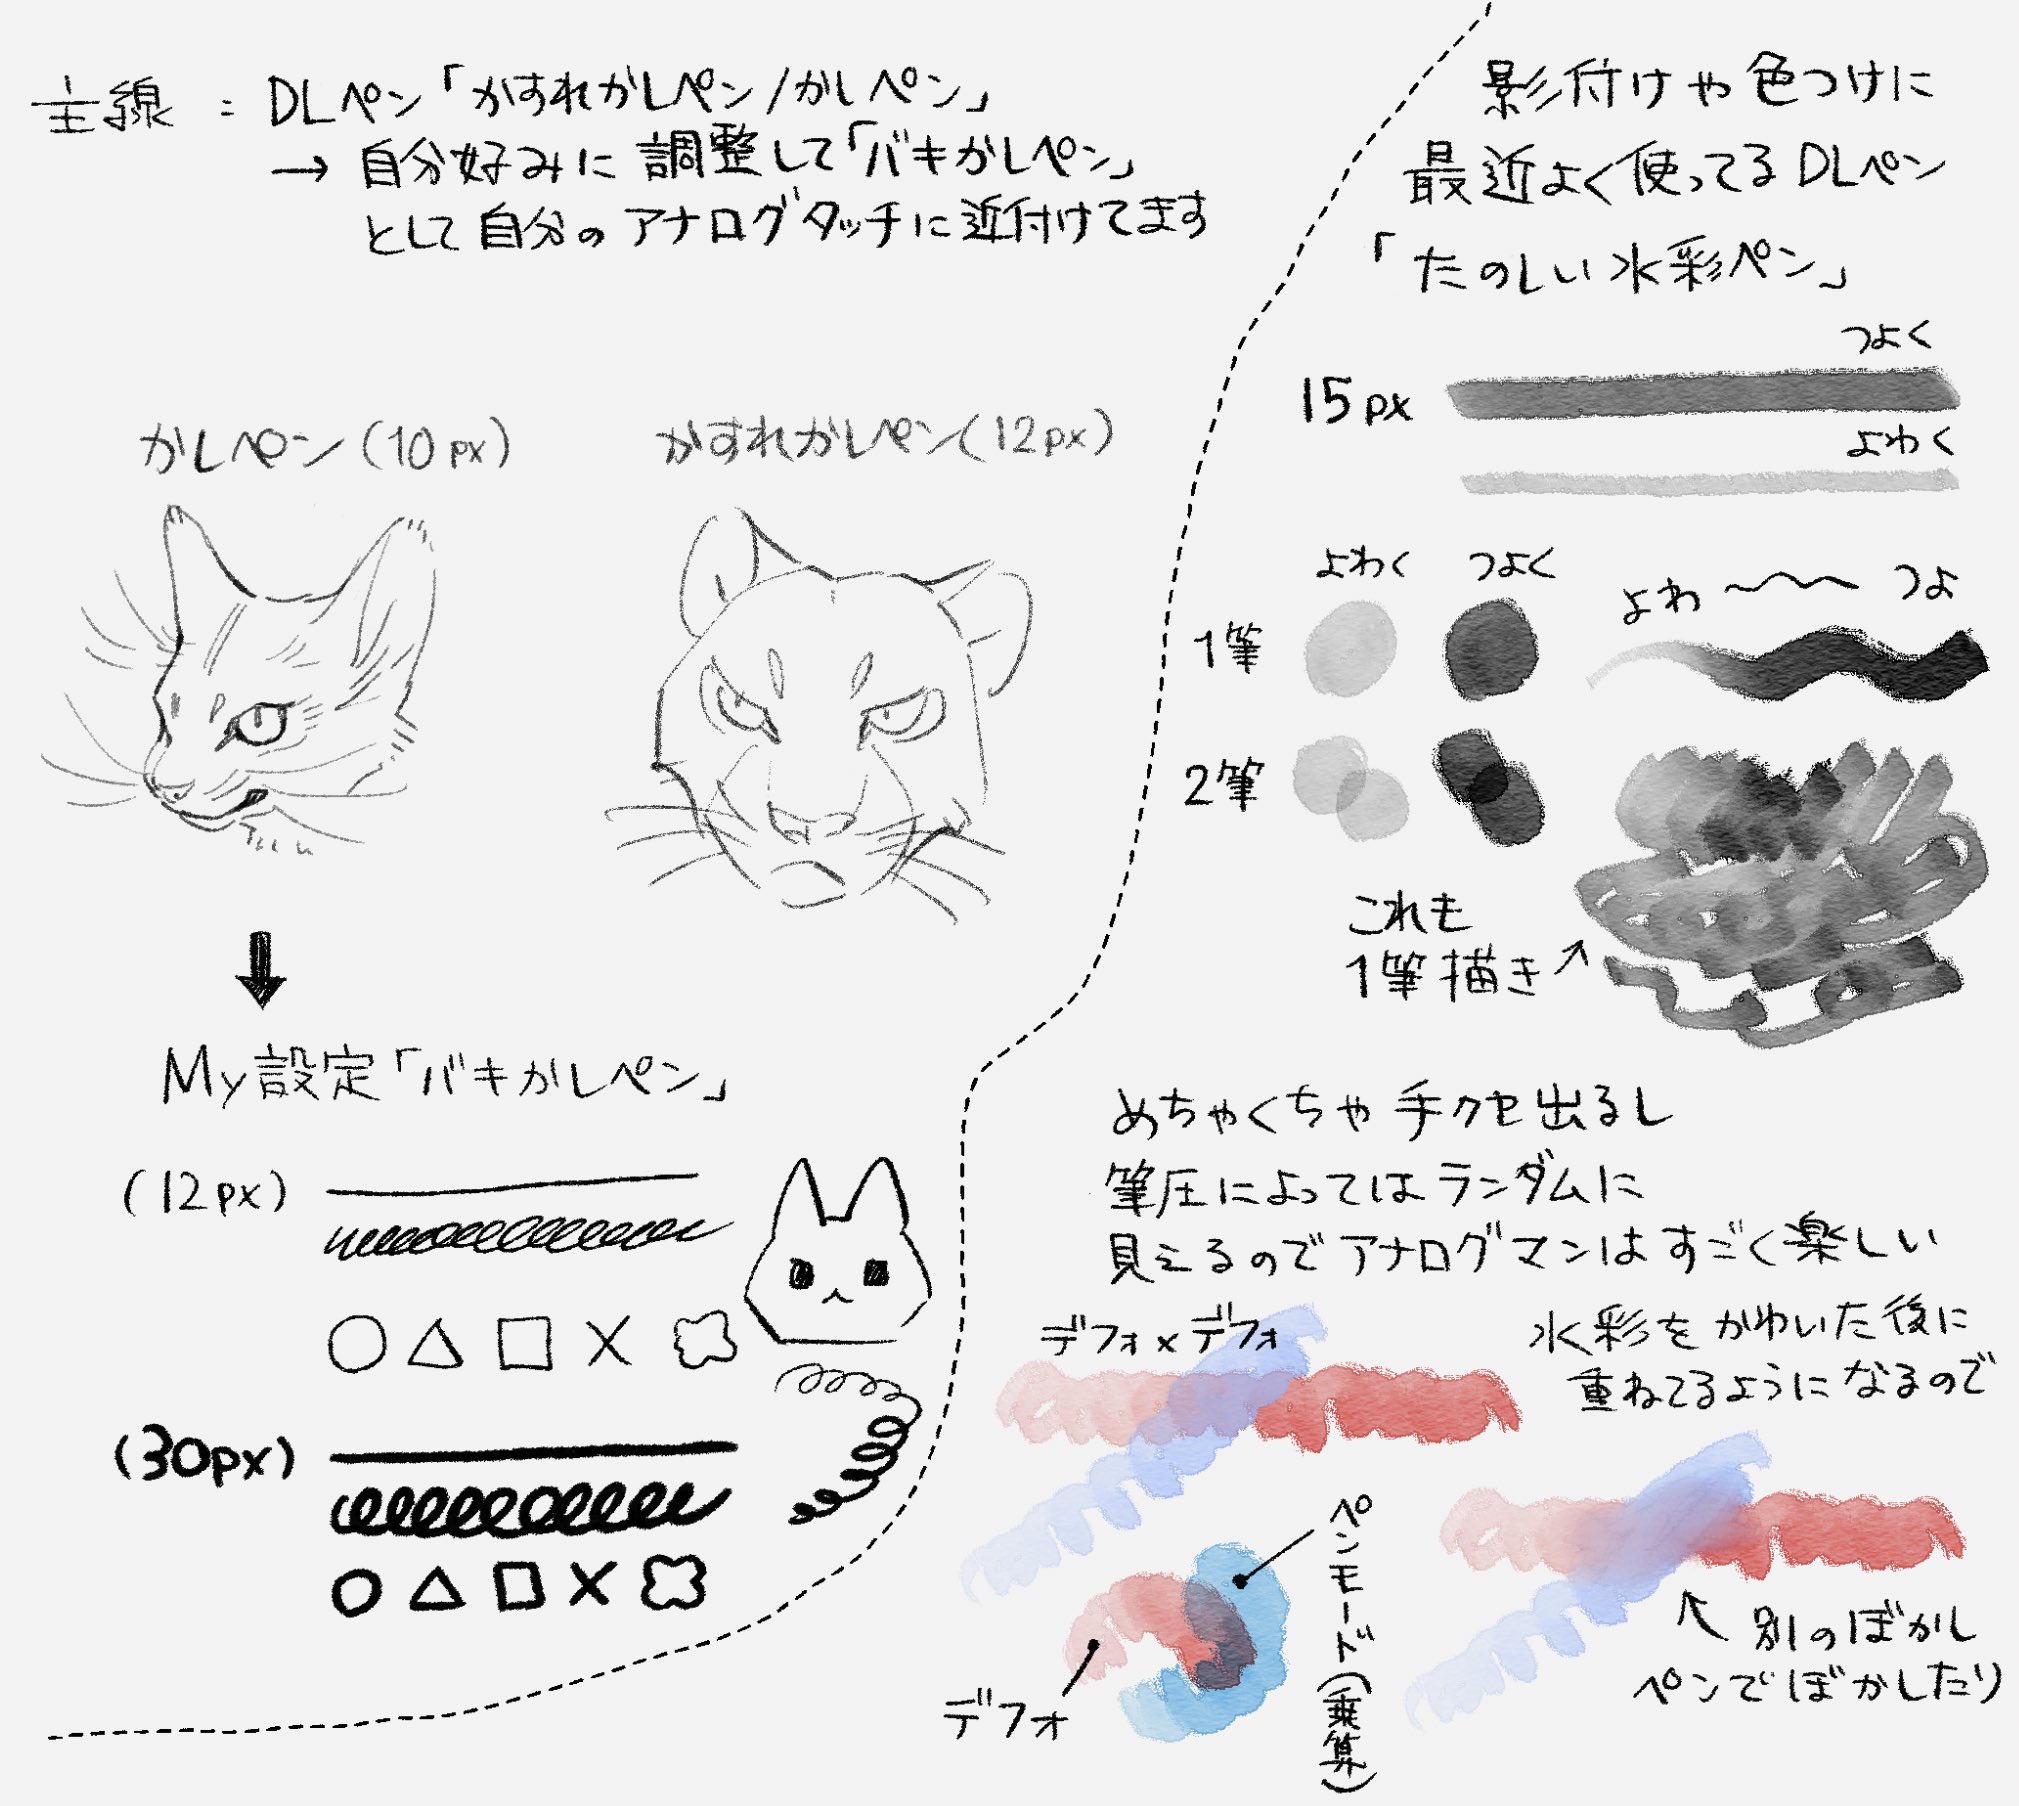 主線 : DLペン「かすれかしペン/かしペン」
→ 自分好みに調整して「バキかしペン」
として自分のアナログタッチに近付けてます
かしペン(10px)
かすれかしペン(12px)
My設定「バキかしペン」
(12px)
(30px)
影付けや色つけに
最近よく使ってるDLペン
「たのしい水彩ペン」
つよく
15px
よわく
よわく つよく
よわ 〜 つよ
1筆
2筆
これも
1筆描き↗
めちゃくちゃ手クセ出るし
筆圧によってはランダムに
見えるのでアナログマンはすごく楽しい
デフォ×デフォ
水彩をかわいた後に
重ねてるようになるので
ペンモード(乗算)
デフォ
↖ 別のぼかし
ペンでぼかしたり